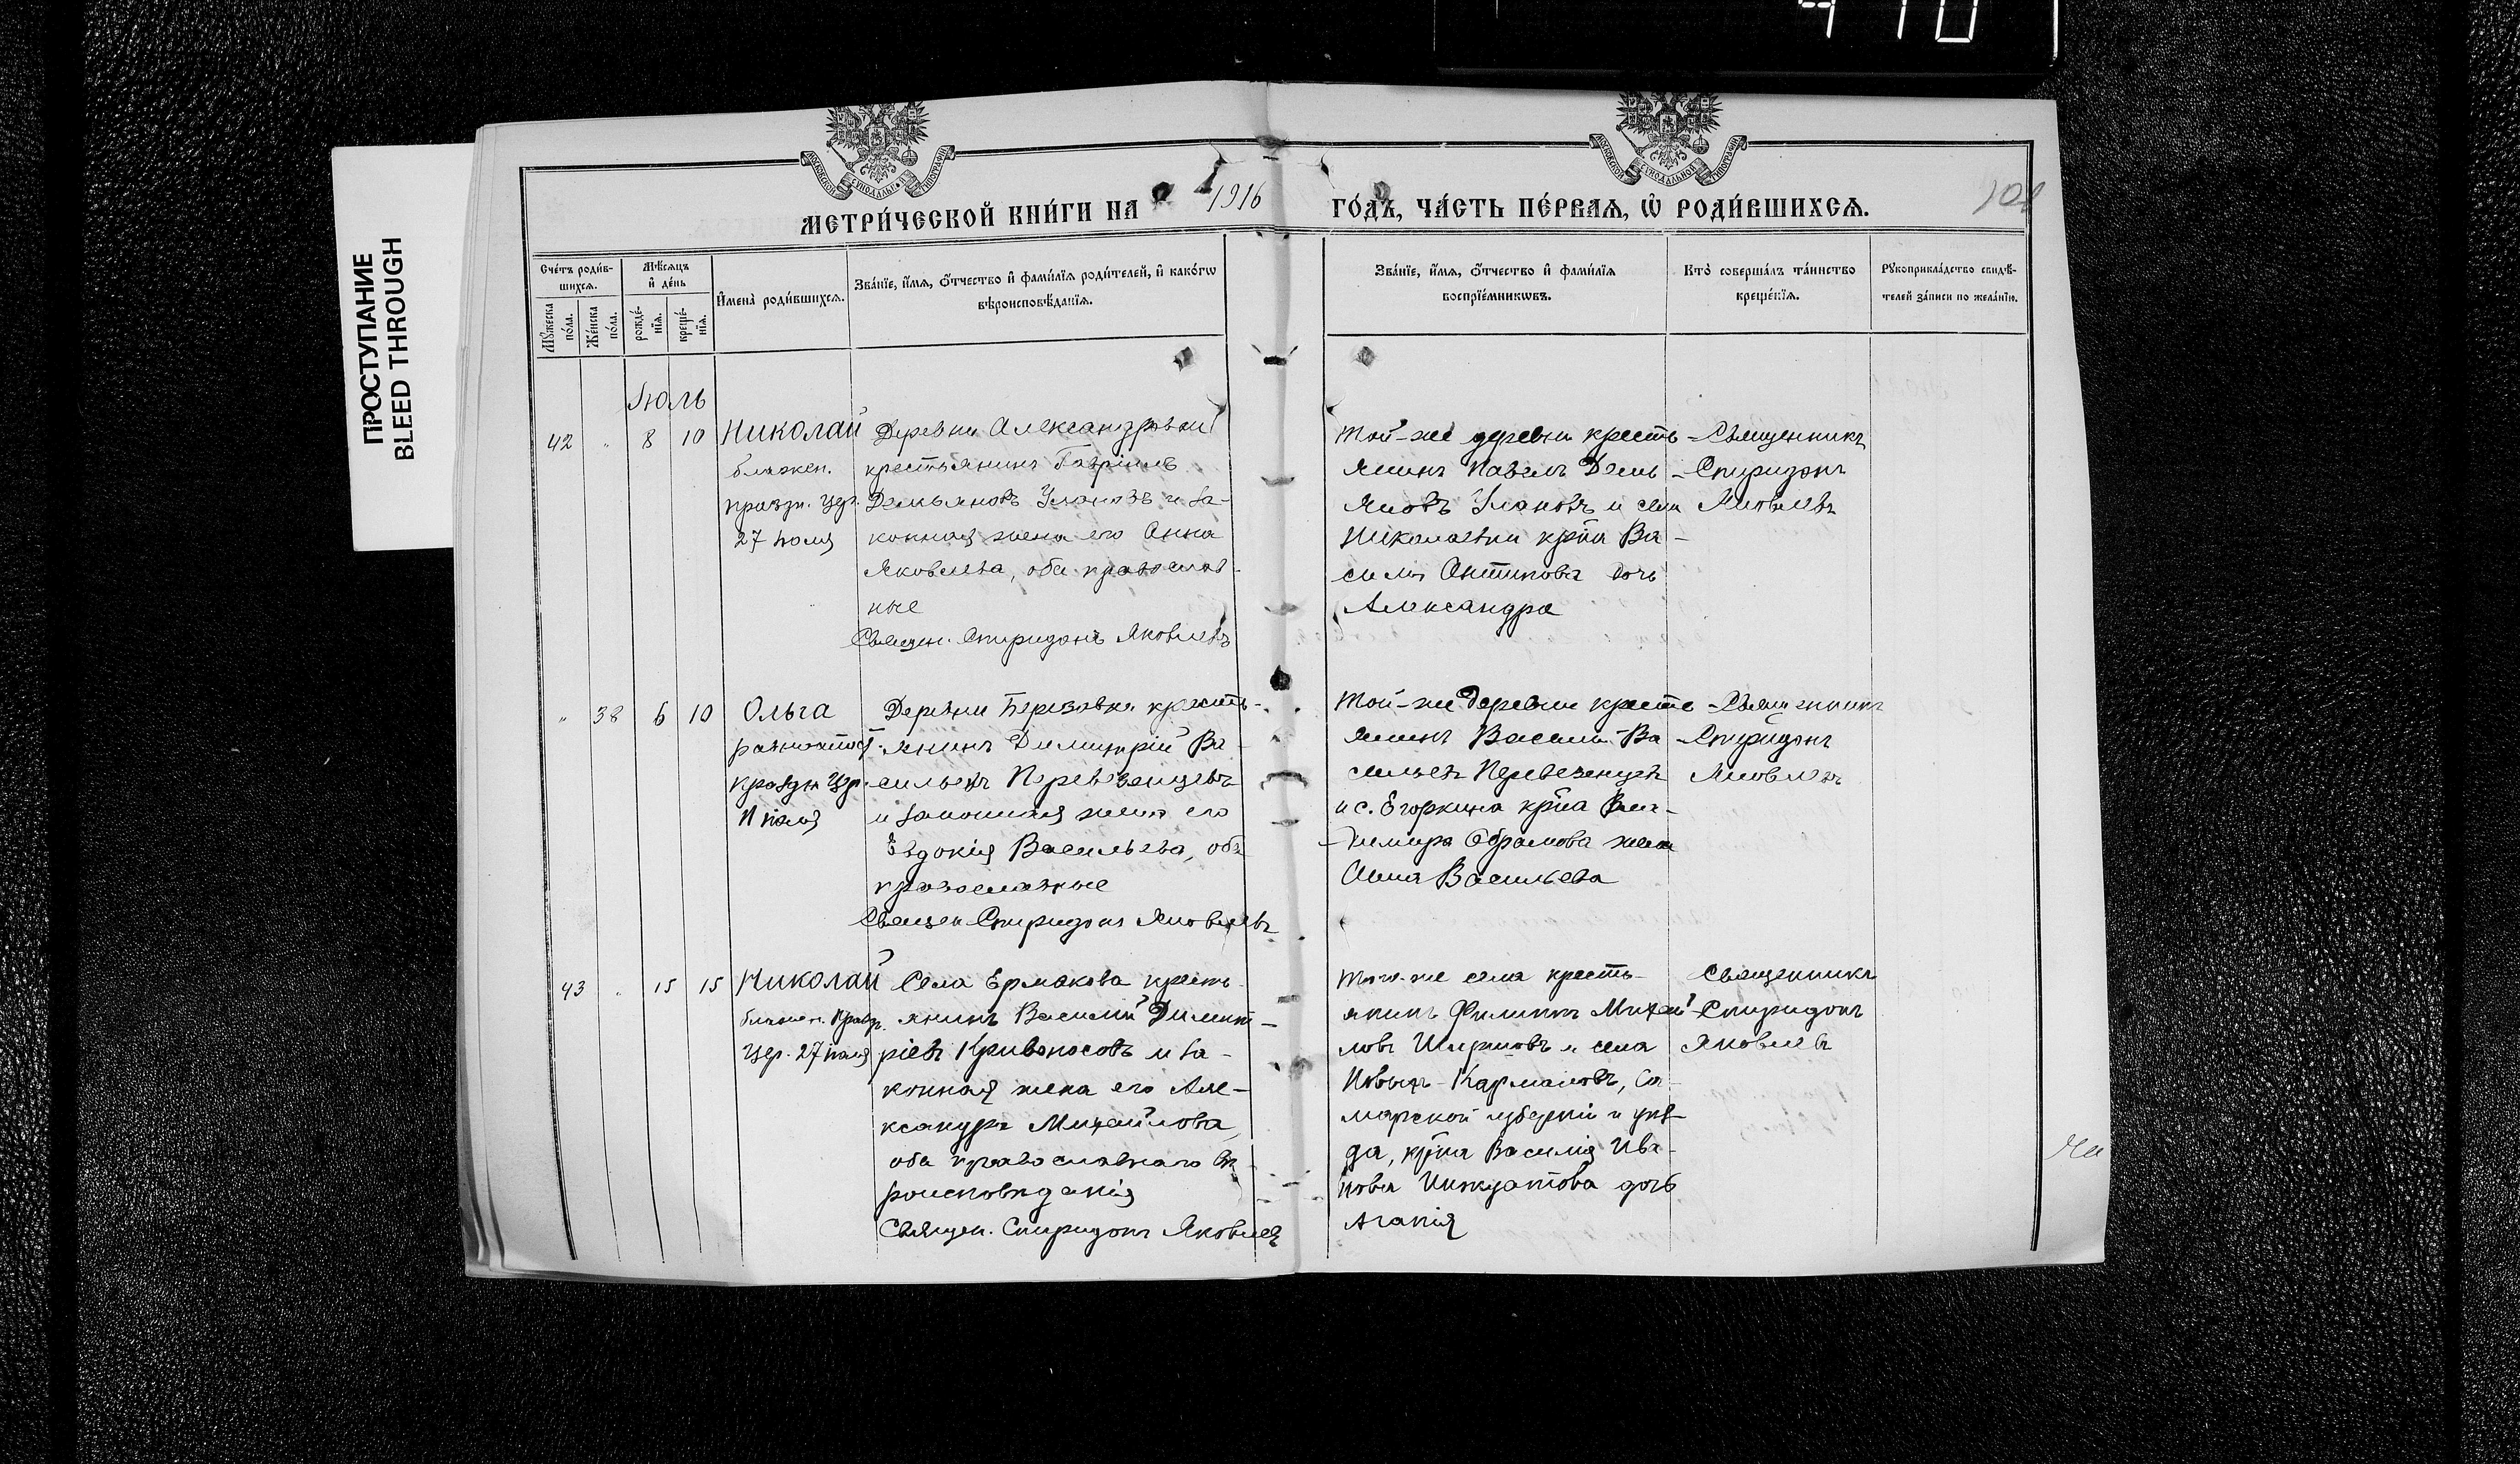 410
ПРОСТУПАНИЕ
BLEED THROUGH
МОСКОВСКОЙ СѴНОДАЛЬНОЙ ТИПОГРАФІИ
МОСКОВСКОЙ СѴНОДАЛЬНОЙ ТИПОГРАФІИ
МЕТРИ́ЧЕСКОЙ КНИ́ГИ НА 1916
ГО́ДЪ, ЧА́СТЬ ПЕ́РВАЯ, Ѡ҆ РОДИ́ВШИХСЯ.
Сче́тъ роди́в-
шихся.
Мѣ́сяцъ
и҆ де́нь
Мꙋ́жеска
по́ла.
Же́нска
по́ла.
рожде́-
нїя.
креще́-
нїя.
И҆мена̀ роди́вшихся.
Зва́нїе, и҆́мя, ѻ҆́тчество и҆ фами́лїя роди́телей, и҆ како́гѡ
вѣроисповѣ́данїя.
Зва́нїе, и҆́мя, ѻ҆́тчество и҆ фами́лїя
воспрїе́мникѡвъ.
Кто̀ соверша́лъ та́инство
креще́нїя.
Рꙋкоприкла́дство свидѣ́-
телей за́писи по жела́нїю.
Іюль
42 " 8 10
Николай
блажен.
праздн. цер.
27 іюля
Деревни Александровки
крестьянинъ Гавріилъ
Демьяновъ Улановъ и за-
конная жена его Анна
Яковлева, оба православ-
ные
Священ. Спиридонъ Яковлевъ
Той-же деревни кресть-
янинъ Павелъ Демь-
яновъ Улановъ и села
Николаевки кр-на Ва-
силія Антипова дочь
Александра
Священникъ
Спиридонъ
Яковлевъ
" 38 6 10
Ольга
равноапост.
праздн цер.
11 іюля
Деревни Березовки кресть-
янинъ Димитрій Ва-
сильевъ Перевезенцевъ
и законная жена его
Евдокія Васильева, оба
православные
Священ Спиридонъ Яковлевъ
Той-же деревни кресть-
янинъ Василій Ва-
сильевъ Перевезенцевъ
и с. Егоркина кр-на Вла-
димира Абрамова жена
Анна Васильева
Священникъ
Спиридонъ
Яковлевъ
43 " 15 15
Николай
блажен. Празд.
цер. 27 іюля
Села Ермакова кресть-
янинъ Василій Димит-
ріевъ Кривоносовъ и за-
конная жена его Але-
ксандра Михайлова,
оба православнаго вѣ-
роисповѣданія
Священ. Спиридонъ Яковлевъ
Того-же села кресть-
янинъ Филиппъ Михай-
ловъ и села
Новыхъ-Кармаловъ, Са-
марской губерніи и уѣз-
да, кр-на Василія Ива-
нова дочь
Агапія
Священникъ
Спиридонъ
Яковлевъ